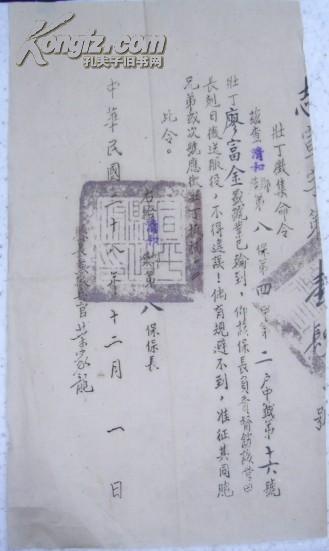 Kongfz.com
孔夫子旧书网
號
壯丁徵集命令
清和 第八保第四甲第二戶中籤第十六號
壯丁廖富金 號業已輪到，仰該保長負責督飭該壯丁
長刻日後送服役，不得違誤！倘有規避不到，准征其同胞
兄弟或次號應徵壯丁抵補
此令。
右給清和 第八保保長
官葉家龍
中華民國二十八年十二月一日